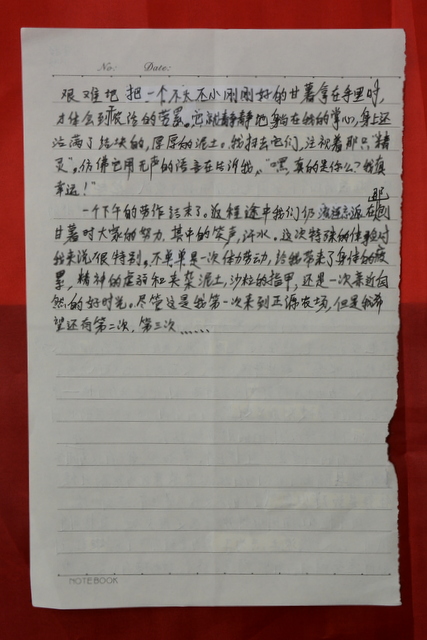 No: Date:
艰难地把一个不大不小刚刚好的甘薯拿在手里时,
才体会到农活的劳累。它就静静地躺在我的掌心,身上还
沾满了结块的,厚厚的泥土。我扫去它们,注视着那"精
灵"。仿佛它用无声的语言在告诉我,"嘿,真的是你么?我真
幸运!"
一个下午的劳作结束了。返程途中我们仍在那刨
甘薯时大家的努力,其中的笑声,汗水。这次特殊的体验对
我来说很特别。不单单是一次体力劳动,给我带来了身体的疲
累,精神的虚弱和夹杂泥土,沙粒的指甲,还是一次亲近自
然的好时光。尽管这是我第一次来到正源农场,但是我希
望还有第二次,第三次……
NOTEBOOK